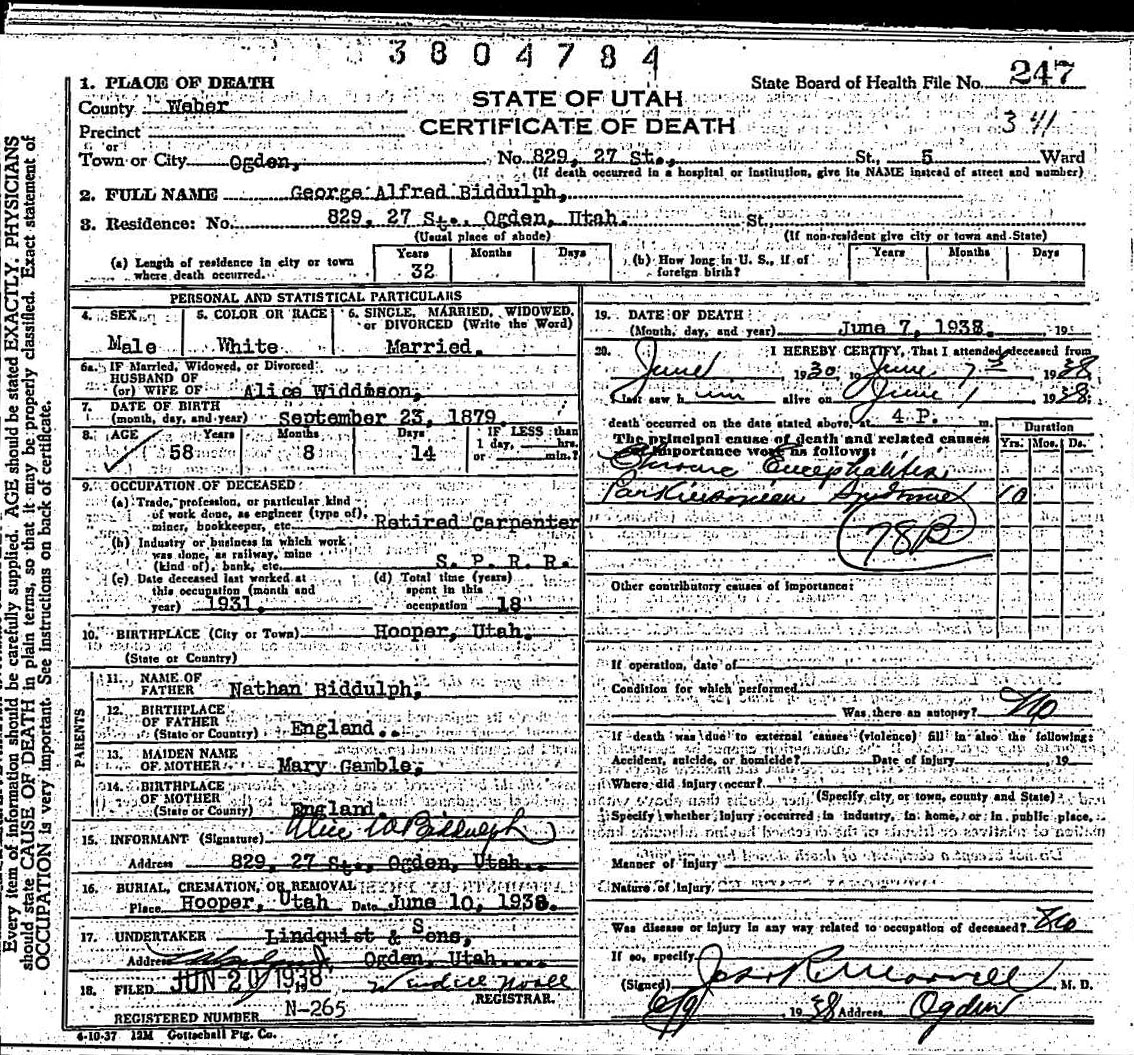 3804784
1. PLACE OF DEATH
State Board of Health File No. 247
County Weber
STATE OF UTAH
Precinct
CERTIFICATE OF DEATH
341
or
Town or City Ogden, No. 829, 27 St., St., 5 Ward
(If death occurred in a hospital or institution, give its NAME instead of street and number)
2. FULL NAME George Alfred Biddulph,
3. Residence: No. 829, 27 St., Ogden, Utah. St.
(Usual place of abode) (If non-resident give city or town and State)
(a) Length of residence in city or town where death occurred. Years 32 Months Days
(b) How long in U. S., if of foreign birth? Years Months Days
PERSONAL AND STATISTICAL PARTICULARS
4. SEX Male
5. COLOR OR RACE White
6. SINGLE, MARRIED, WIDOWED, or DIVORCED (Write the Word) Married.
6a. IF Married, Widowed, or Divorced
HUSBAND OF
(or) WIFE OF Alice Widdison,
7. DATE OF BIRTH
(month, day, and year) September 23, 1879
8. AGE Years 58 Months 8 Days 14 IF LESS than 1 day, hrs. or min.?
9. OCCUPATION OF DECEASED
(a) Trade, profession, or particular kind
of work done, as engineer (type of),
miner, bookkeeper, etc. Retired Carpenter
(b) Industry or business in which work
was done, as railway, mine
(kind of), bank, etc. S. P. R. R.
(c) Date deceased last worked at
this occupation (month and
year) 1931.
(d) Total time (years)
spent in this
occupation 18
10. BIRTHPLACE (City or Town) Hooper, Utah.
(State or Country)
PARENTS
11. NAME OF
FATHER Nathan Biddulph,
12. BIRTHPLACE
OF FATHER
(State or Country) England..
13. MAIDEN NAME
OF MOTHER Mary Gamble,
14. BIRTHPLACE
OF MOTHER
(State or County) England.
15. INFORMANT (Signature) Alice W Biddulph
Address 829, 27 St., Ogden, Utah..
16. BURIAL, CREMATION, OR REMOVAL
Place Hooper, Utah Date June 10, 1938.
17. UNDERTAKER Lindquist & Sons,
Address Ogden, Utah....
18. FILED JUN 20 1938
REGISTRAR.
REGISTERED NUMBER N-265
4-10-37 12M Gottschall Ptg. Co.
19. DATE OF DEATH
(Month, day, and year) June 7, 1938. 19
20. I HEREBY CERTIFY, That I attended deceased from
June 1930 to June 7th 1938
I last saw him alive on June 1 1938;
death occurred on the date stated above, at 4 P. m.
The principal cause of death and related causes
of importance were as follows:
Duration
Yrs. Mos. Ds.
Chronic Encephalitis
Parkinsonian Syndrome 10
78B
Other contributory causes of importance:
If operation, date of
Condition for which performed
Was there an autopsy? No
If death was due to external causes (violence) fill in also the following:
Accident, suicide, or homicide? Date of injury 19
Where did injury occur?
(Specify city or town, county and State)
Specify whether injury occurred in industry, in home, or in public place,
Manner of injury
Nature of injury
Was disease or injury in any way related to occupation of deceased? No
If so, specify
(Signed) M. D.
6/9, 1938 Address Ogden
Every item of information should be carefully supplied. AGE should be stated EXACTLY. PHYSICIANS
should state CAUSE OF DEATH in plain terms, so that it may be properly classified. Exact statement of
OCCUPATION is very important. See instructions on back of certificate.